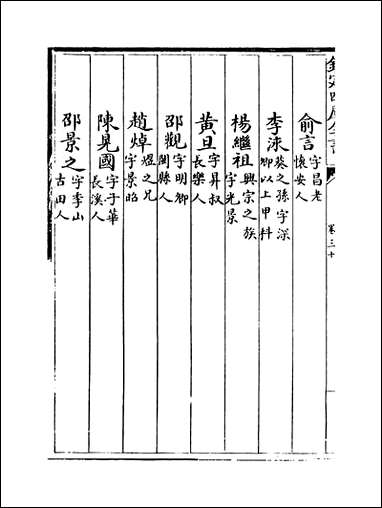 欽定四庫全書
卷三十
俞言字昌老懷安人
李洙葵之孫字深卿以上甲科
楊繼祖興宗之族字光景
黄旦字昇叔長樂人
邵觀字明卿閩縣人
趙焯煜之兄字景昭
陳晃國字子華長溪人
邵景之字季山古田人